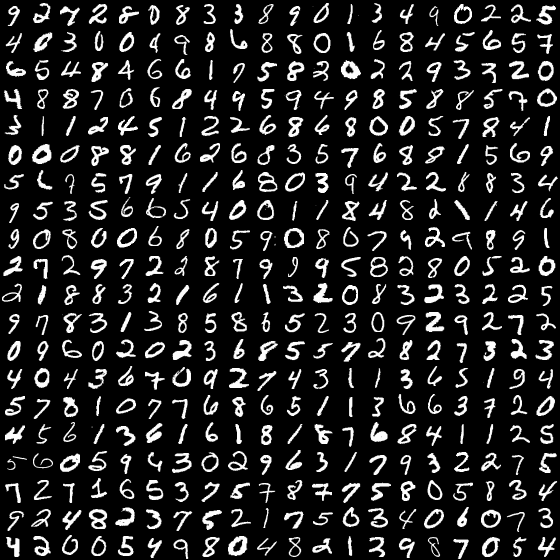 9 2 7 2 8 0 8 3 3 8 9 0 1 3 4 9 0 2 2 5
4 0 3 0 0 4 9 8 6 8 8 0 1 6 8 4 5 6 5 7
6 5 4 8 4 6 6 1 7 5 8 2 0 2 2 9 3 3 2 0
4 8 8 7 0 6 8 4 9 5 9 4 9 8 5 8 8 5 7 0
3 1 1 2 4 5 1 2 2 6 8 6 8 0 0 5 7 8 4 1
0 0 0 8 8 1 6 2 6 8 3 5 7 6 8 8 1 5 6 9
5 6 9 5 7 9 1 1 6 8 0 3 9 4 2 2 8 8 3 4
9 5 3 5 6 6 5 4 0 0 1 1 8 4 8 2 1 1 4 6
9 0 8 0 0 6 8 0 5 9 0 8 0 7 9 2 9 8 9 1
2 7 2 9 7 2 2 8 7 9 9 9 5 8 2 8 0 5 2 0
2 1 8 8 3 2 1 6 1 1 3 2 0 8 3 2 3 2 2 5
9 7 8 3 1 3 8 5 8 6 5 2 3 0 9 2 9 2 7 2
0 9 6 0 2 0 2 3 6 8 5 5 7 2 8 2 7 3 2 3
4 0 4 3 6 7 0 9 2 7 4 3 1 1 3 6 5 1 9 4
5 7 8 1 0 7 7 6 8 6 5 1 1 3 6 6 3 7 2 0
4 5 6 1 3 6 1 6 1 8 1 8 7 6 8 4 1 1 2 5
5 6 0 5 9 6 3 0 2 9 6 3 1 7 9 3 2 2 7 5
7 2 7 1 6 5 3 7 5 7 8 7 7 5 8 0 5 8 3 4
9 2 4 8 2 3 7 5 2 1 7 5 0 3 4 0 6 0 7 3
4 2 0 0 5 4 9 8 0 4 8 2 1 3 9 8 7 0 5 4